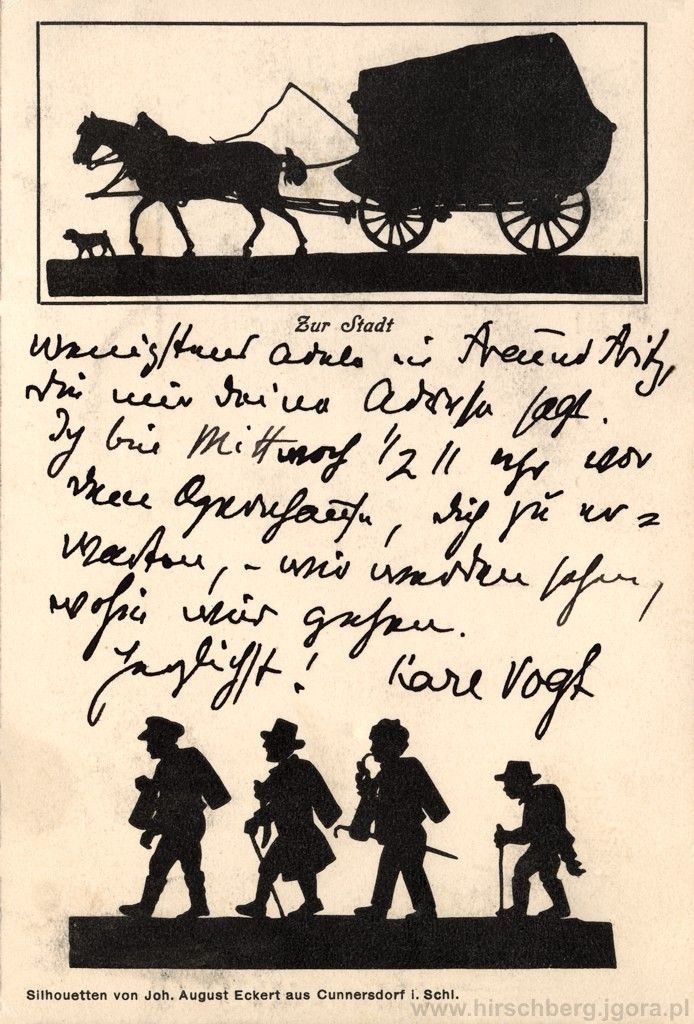 Zur Stadt
wenigstens oder in Freund Fritz,
die mir deine Adresse sagt.
Ich bin Mittwoch 1/2 11 Uhr vor
dem Opernhause, dich zu er=
warten, - wir werden sehen,
wohin wir gehen.
Herzlichst! Karl Vogt
Silhouetten von Joh. August Eckert aus Cunnersdorf i. Schl.
www.hirschberg.jgora.pl